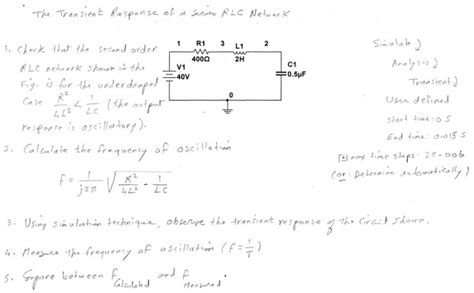 The Transient Response of a series RLC Network
1. Check that the second order
RLC network shown in the
Fig. is for the underdamped
Case R²/4L² < 1/LC (the output
response is oscillatory).
1 R1 3 L1 2
400Ω 2H
V1
40V
C1
0.5µF
0
Simulate
Analysis
Transient
User defined
start time: 0 s
End time: 0.015 s
max time steps: 2e-006
(or: Determine automatically)
2. Calculate the frequency of oscillation
f = 1/j2π √ R²/4L² - 1/LC
3. Using simulation technique, observe the transient response of the Circuit shown.
4. Measure the frequency of oscillation (f = 1/T)
5. Compare between f Calculated and f Measured.